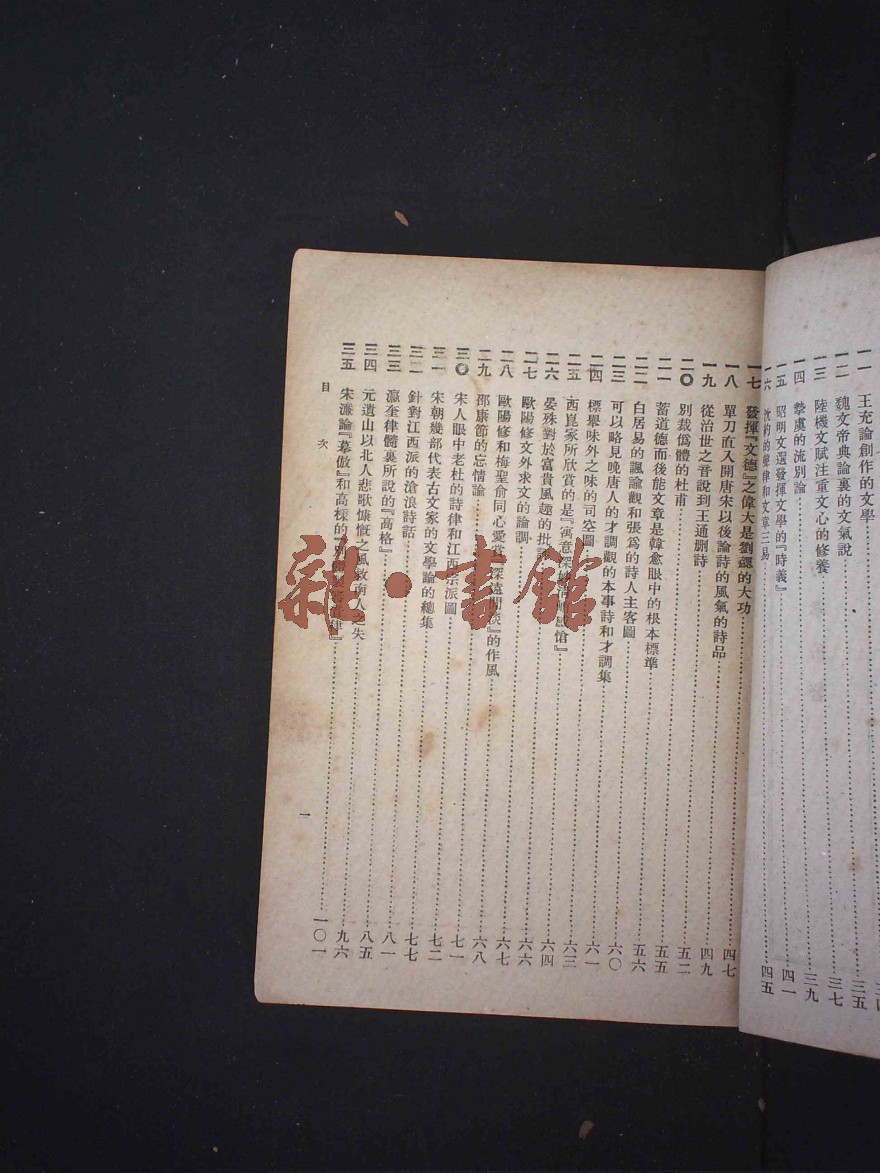 一一 王充論創作的文學……三五
一二 魏文帝典論裏的文氣說……三七
一三 陸機文賦注重文心的修養……三九
一四 摯虞的流別論……四一
一五 昭明文選發揮文學的『時義』……四五
一六 的聲律和文章三易
一七 發揮『文德』之偉大是劉勰的大功……四七
一八 單刀直入開唐宋以後論詩的風氣的詩品……四九
一九 從治世之音說到王通删詩……五二
二〇 別裁僞體的杜甫……五五
二一 蓄道德而後能文章是韓愈眼中的根本標準……五六
二二 白居易的諷諭觀和張爲的詩人主客圖……六〇
二三 可以略見晚唐人的才調觀的本事詩和才調集……六一
二四 標舉味外之味的司空圖……六三
二五 西崑家所欣賞的是『寓意深……愴』……六四
二六 晏殊對於富貴風趣的批……六六
二七 歐陽修文外求文的論調……六七
二八 歐陽修和梅聖俞同心愛賞『深遠閒淡』的作風……六八
二九 邵康節的忘情論……七一
三〇 宋人眼中老杜的詩律和江西宗派圖……七二
三一 宋朝幾部代表古文家的文學論的總集……七七
三二 針對江西派的滄浪詩話……八一
三三 瀛奎律髓裏所說的『高格』……八五
三四 元遺山以北人悲歌慷慨之風救南人之失……九六
三五 宋濂論『摹倣』和高棅的別……律』……一〇一
目次
一
雜·書館